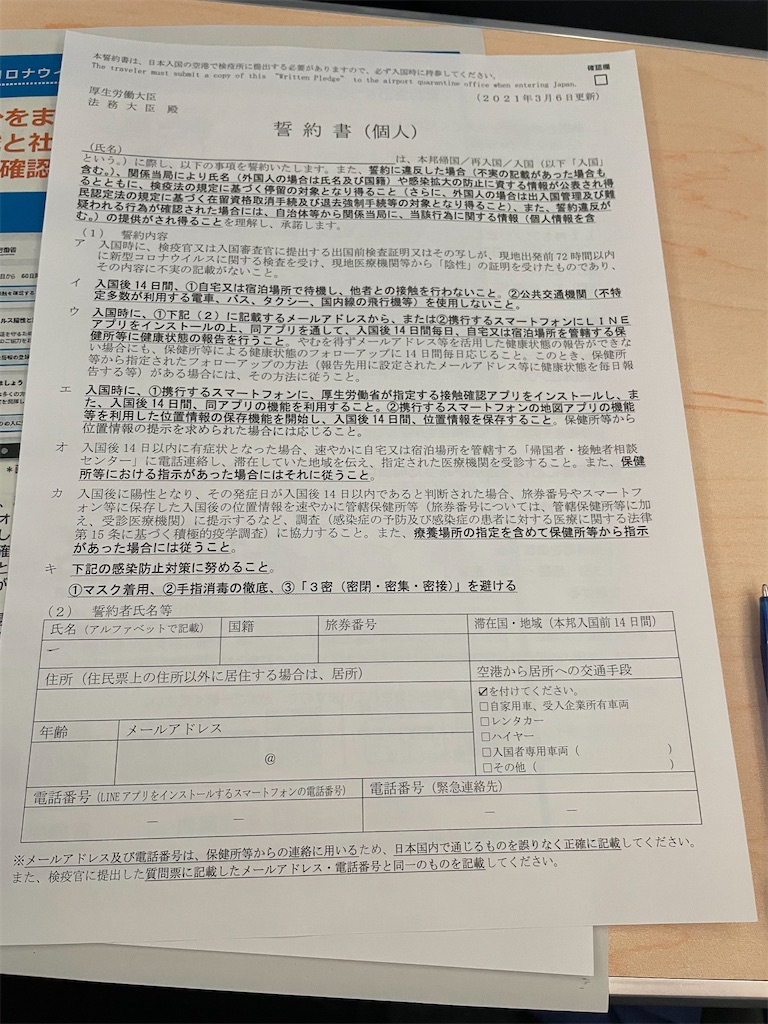 本誓約書は、日本入国の空港で検疫所に提出する必要がありますので、必ず入国時に持参してください。
The traveler must submit a copy of this “Written Pledge” to the airport quarantine office when entering Japan.
確認欄
□
厚生労働大臣
法務大臣 殿
(2021年3月6日更新)
誓約書(個人)
(氏名) は、本邦帰国/再入国/入国(以下「入国」
という。)に際し、以下の事項を誓約いたします。また、誓約に違反した場合(不実の記載があった場合も
含む。)、関係当局により氏名(外国人の場合は氏名及び国籍)や感染拡大の防止に資する情報が公表され得
るとともに、検疫法の規定に基づく停留の対象となり得ること(さらに、外国人の場合は出入国管理及び難
民認定法の規定に基づく在留資格取消手続及び退去強制手続等の対象となり得ること)、また、誓約違反が
疑われる行為が確認された場合には、自治体等から関係当局に、当該行為に関する情報(個人情報を含
む。)の提供がされ得ることを理解し、承諾します。
(1) 誓約内容
ア 入国時に、検疫官又は入国審査官に提出する出国前検査証明又はその写しが、現地出発前72時間以内
に新型コロナウイルスに関する検査を受け、現地医療機関等から「陰性」の証明を受けたものであり、
その内容に不実の記載がないこと。
イ 入国後14日間、①自宅又は宿泊場所で待機し、他者との接触を行わないこと。②公共交通機関(不特
定多数が利用する電車、バス、タクシー、国内線の飛行機等)を使用しないこと。
ウ 入国時に、①下記(2)に記載するメールアドレスから、または②携行するスマートフォンにLINE
アプリをインストールの上、同アプリを通して、入国後14日間毎日、自宅又は宿泊場所を管轄する保
健所等に健康状態の報告を行うこと。やむを得ずメールアドレス等を活用した健康状態の報告ができな
い場合にも、保健所等による健康状態のフォローアップに14日間毎日応じること。このとき、保健所
等から指定されたフォローアップの方法(報告先用に設定されたメールアドレス等に健康状態を毎日報
告する等)がある場合には、その方法に従うこと。
エ 入国時に、①携行するスマートフォンに、厚生労働省が指定する接触確認アプリをインストールし、ま
た、入国後14日間、同アプリの機能を利用すること。②携行するスマートフォンの地図アプリの機能
等を利用した位置情報の保存機能を開始し、入国後14日間、位置情報を保存すること。保健所等から
位置情報の提示を求められた場合には応じること。
オ 入国後14日以内に有症状となった場合、速やかに自宅又は宿泊場所を管轄する「帰国者・接触者相談
センター」に電話連絡し、滞在していた地域を伝え、指定された医療機関を受診すること。また、保健
所等における指示があった場合はそれに従うこと。
カ 入国後に陽性となり、その発症日が入国後14日以内であると判断された場合、旅券番号やスマートフ
ォン等に保存した入国後の位置情報を速やかに管轄保健所等(旅券番号については、管轄保健所等に加
え、受診医療機関)に提示するなど、調査(感染症の予防及び感染症の患者に対する医療に関する法律
第15条に基づく積極的疫学調査)に協力すること。また、療養場所の指定を含めて保健所等から指示
があった場合には従うこと。
キ 下記の感染防止対策に努めること。
①マスク着用、②手指消毒の徹底、③「3密(密閉・密集・密接)」を避ける
(2) 誓約者氏名等
氏名(アルファベットで記載) 国籍 旅券番号 滞在国・地域(本邦入国前14日間)
住所(住民票上の住所以外に居住する場合は、居所) 空港から居所への交通手段
☑を付けてください。
□自家用車、受入企業所有車両
□レンタカー
□ハイヤー
□入国者専用車両( )
□その他( )
年齢 メールアドレス
@
電話番号(LINEアプリをインストールするスマートフォンの電話番号) 電話番号(緊急連絡先)
― ― ― ―
※メールアドレス及び電話番号は、保健所等からの連絡に用いるため、日本国内で通じるものを誤りなく正確に記載してください。
また、検疫官に提出した質問票に記載したメールアドレス・電話番号と同一のものを記載してください。